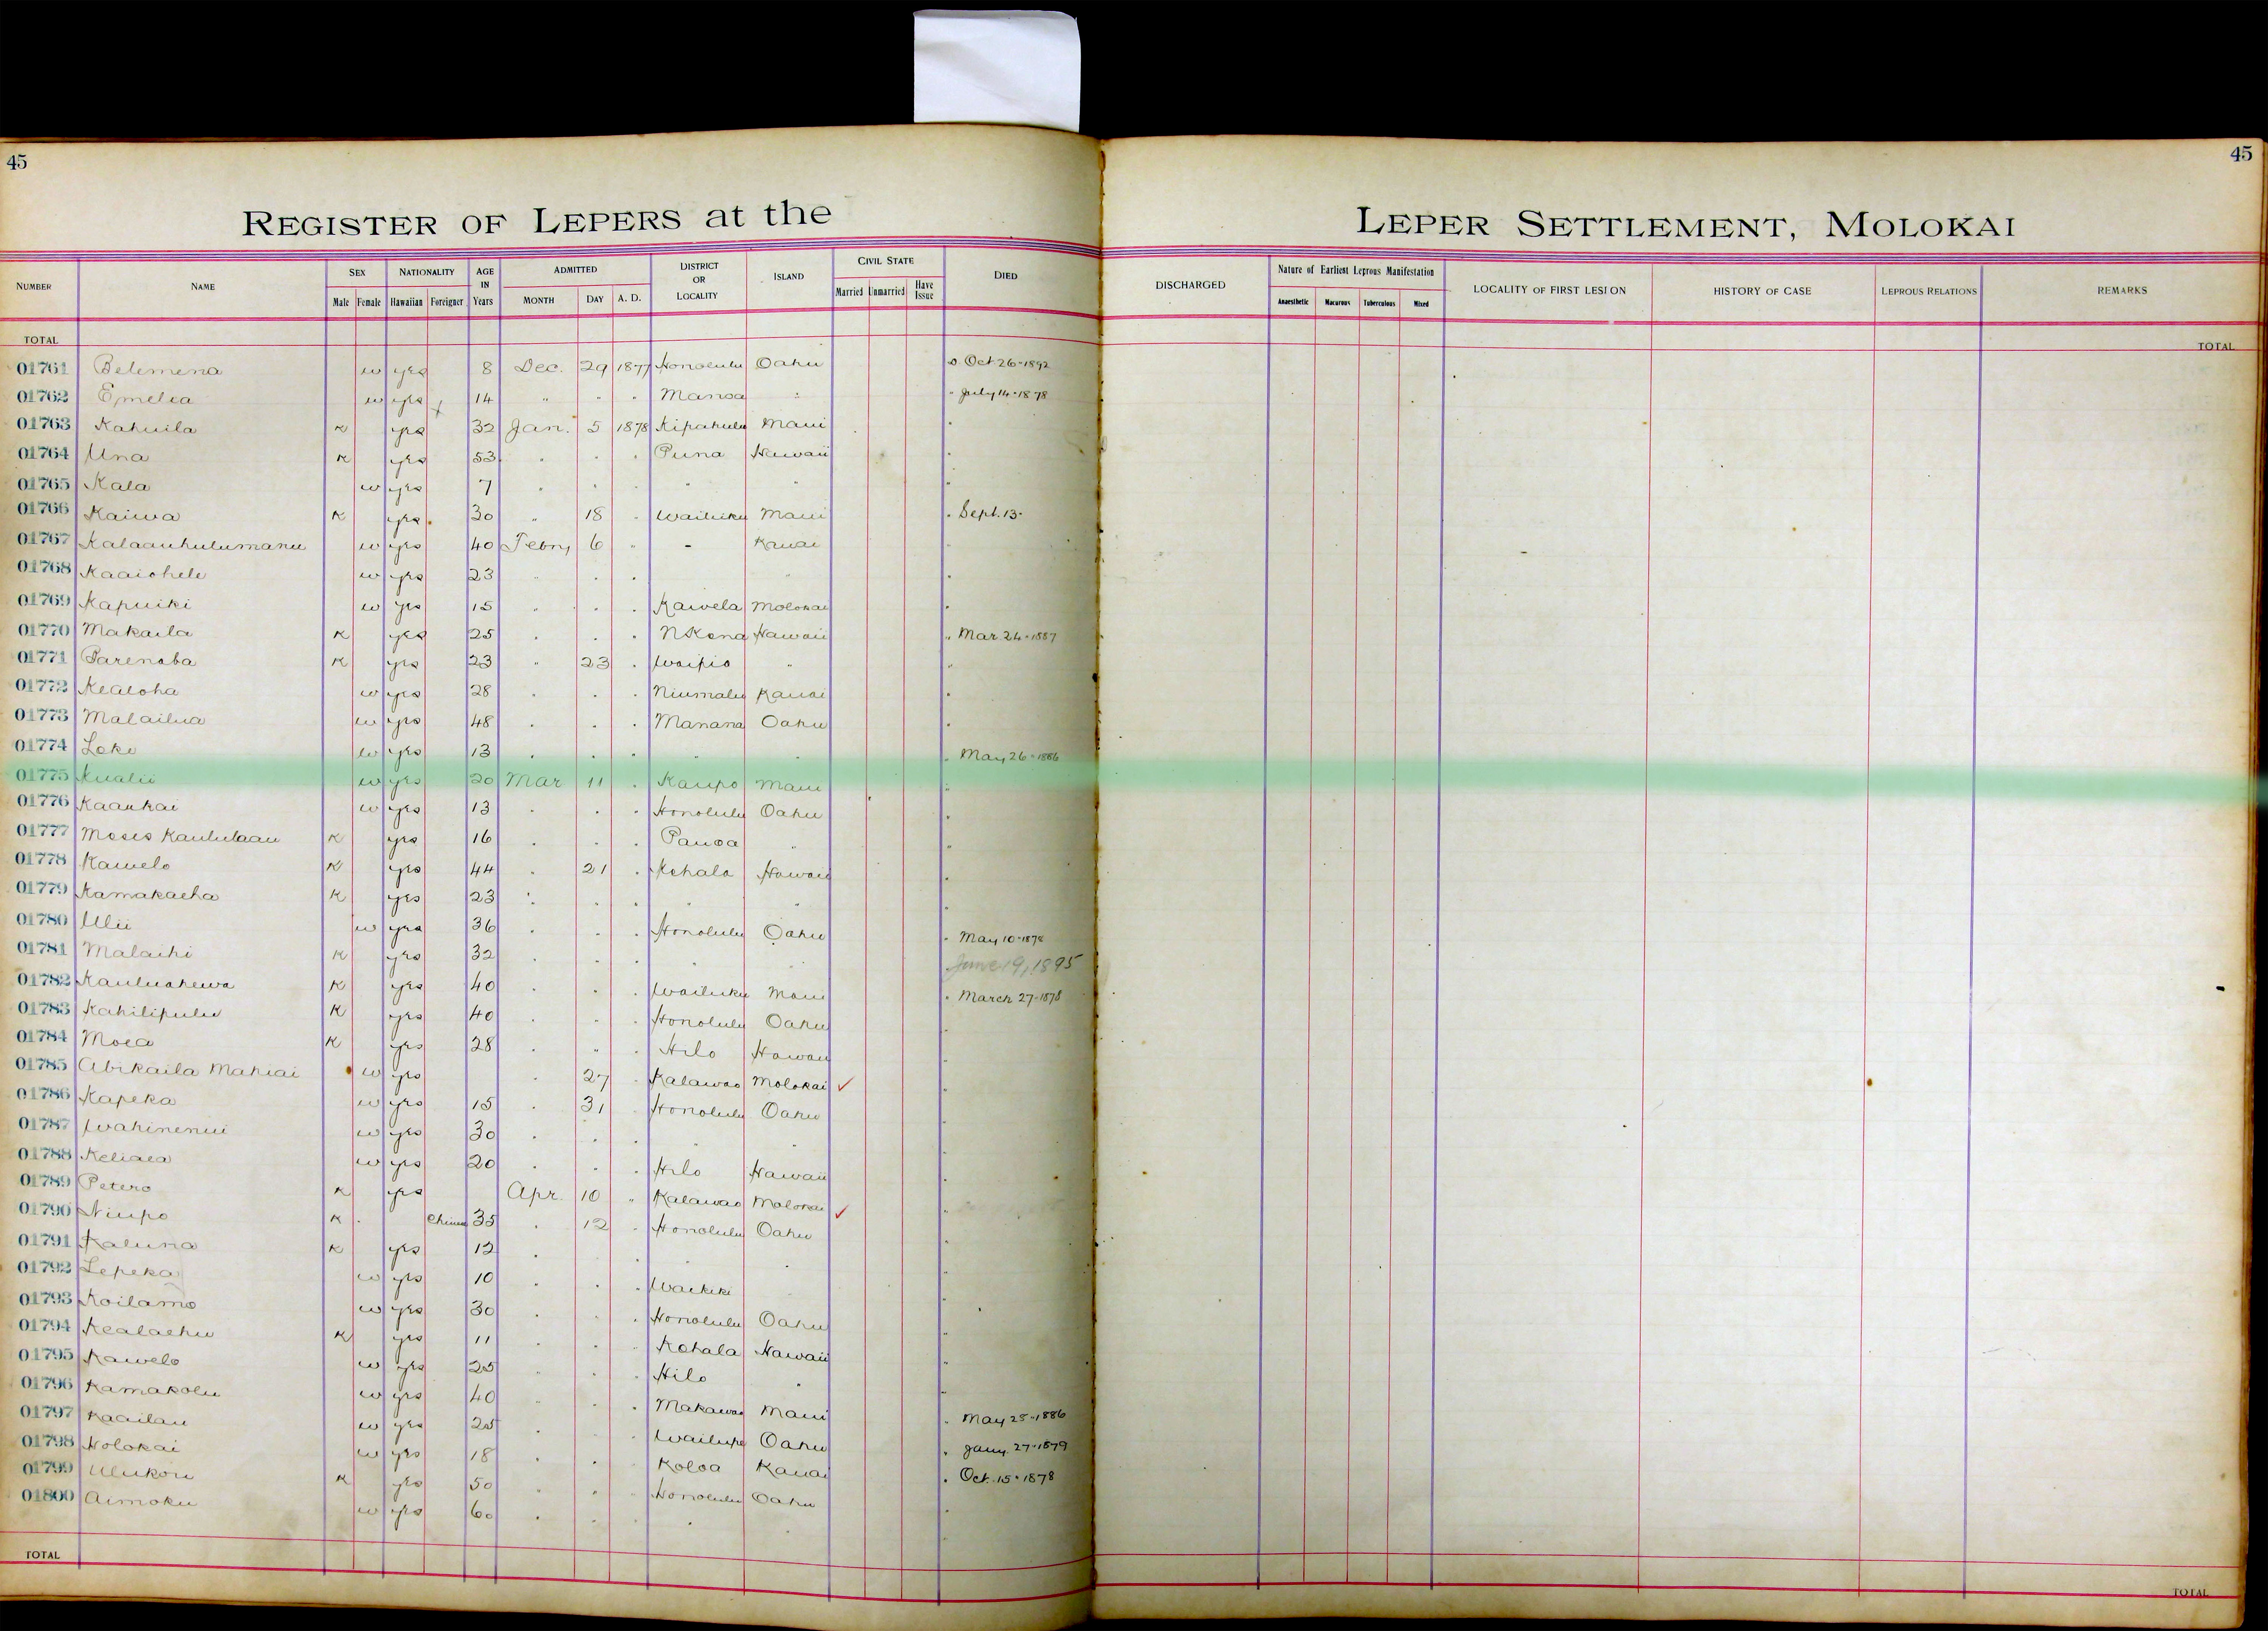 45
45
REGISTER OF LEPERS at the LEPER SETTLEMENT, MOLOKAI
NUMBER NAME SEX NATIONALITY AGE IN Years ADMITTED DISTRICT OR LOCALITY ISLAND CIVIL STATE DIED DISCHARGED Nature of Earliest Leprous Manifestation LOCALITY OF FIRST LESION HISTORY OF CASE LEPROUS RELATIONS REMARKS
Male Female Hawaiian Foreigner MONTH DAY A. D. Married Unmarried Have Issue Anaesthetic Macurous Tuberculous Mixed
TOTAL TOTAL
01761 Belemena w yes 8 Dec. 29 1877 Honolulu Oahu Oct 26-1892
01762 Emelia w yes 14 " " " Manoa " " July 14-1878
01763 Kahuila K yes 32 Jan. 5 1878 Kipahulu Maui "
01764 Una K yes 53 " " " Puna Hawaii "
01765 Kala w yes 7 " " " " " "
01766 Kaiwa K yes 30 " 18 " Wailuku Maui " Sept. 13-
01767 Kalaauhulumanu w yes 40 Febry 6 " - Kauai "
01768 Kaaiohele w yes 23 " " " " "
01769 Kapuiki w yes 15 " " " Kawela Molokai "
01770 Makaila K yes 25 " " " N Kona Hawaii " Mar 24-1887
01771 Parenaba K yes 23 " 23 " Waipio " "
01772 Kealoha w yes 28 " " " Niumalu Kauai "
01773 Malailua w yes 48 " " " Manana Oahu "
01774 Loke w yes 13 " " " " " " May 26-1886
01775 Kualii w yes 20 Mar 11 " Kaupo Maui "
01776 Kaaukai w yes 13 " " " Honolulu Oahu "
01777 Moses Kaululaau K yes 16 " " " Pauoa " "
01778 Kawelo K yes 44 " 21 " Kohala Hawaii "
01779 Kamakaeha K yes 23 " " " " " "
01780 Ulii w yes 36 " " " Honolulu Oahu " May 10-1878
01781 Malaihi K yes 32 " " " " " June 19, 1895
01782 Kauluahewa K yes 40 " " " Wailuku Maui " March 27-1878
01783 Kahilipulu K yes 40 " " " Honolulu Oahu "
01784 Moea K yes 28 " " " Hilo Hawaii "
01785 Abikaila Mahiai w yes " 27 " Kalawao Molokai ✓ "
01786 Kapeka w yes 15 " 31 " Honolulu Oahu "
01787 Wahinenui w yes 30 " " " " " "
01788 Keliaea w yes 20 " " " Hilo Hawaii "
01789 Petero K yes Apr. 10 " Kalawao Molokai ✓ "
01790 Niupo K 35 " 12 " Honolulu Oahu "
01791 Kaluna K yes 12 " " " " " "
01792 Lepeka w yes 10 " " " Waikiki " "
01793 Koilamo w yes 30 " " " Honolulu Oahu "
01794 Kealaehu K yes 11 " " " Kohala Hawaii "
01795 Kawelo w yes 25 " " " Hilo " "
01796 Kamakolu w yes 40 " " " Makawao Maui " May 25-1886
01797 Kaailau w yes 25 " " " Wailupe Oahu " Jany. 27-1879
01798 Holokai w yes 18 " " " Koloa Kauai " Oct. 15-1878
01799 Ulukou K yes 50 " " " Honolulu Oahu "
01800 Aimoku w yes 60 " " " " " "
TOTAL TOTAL